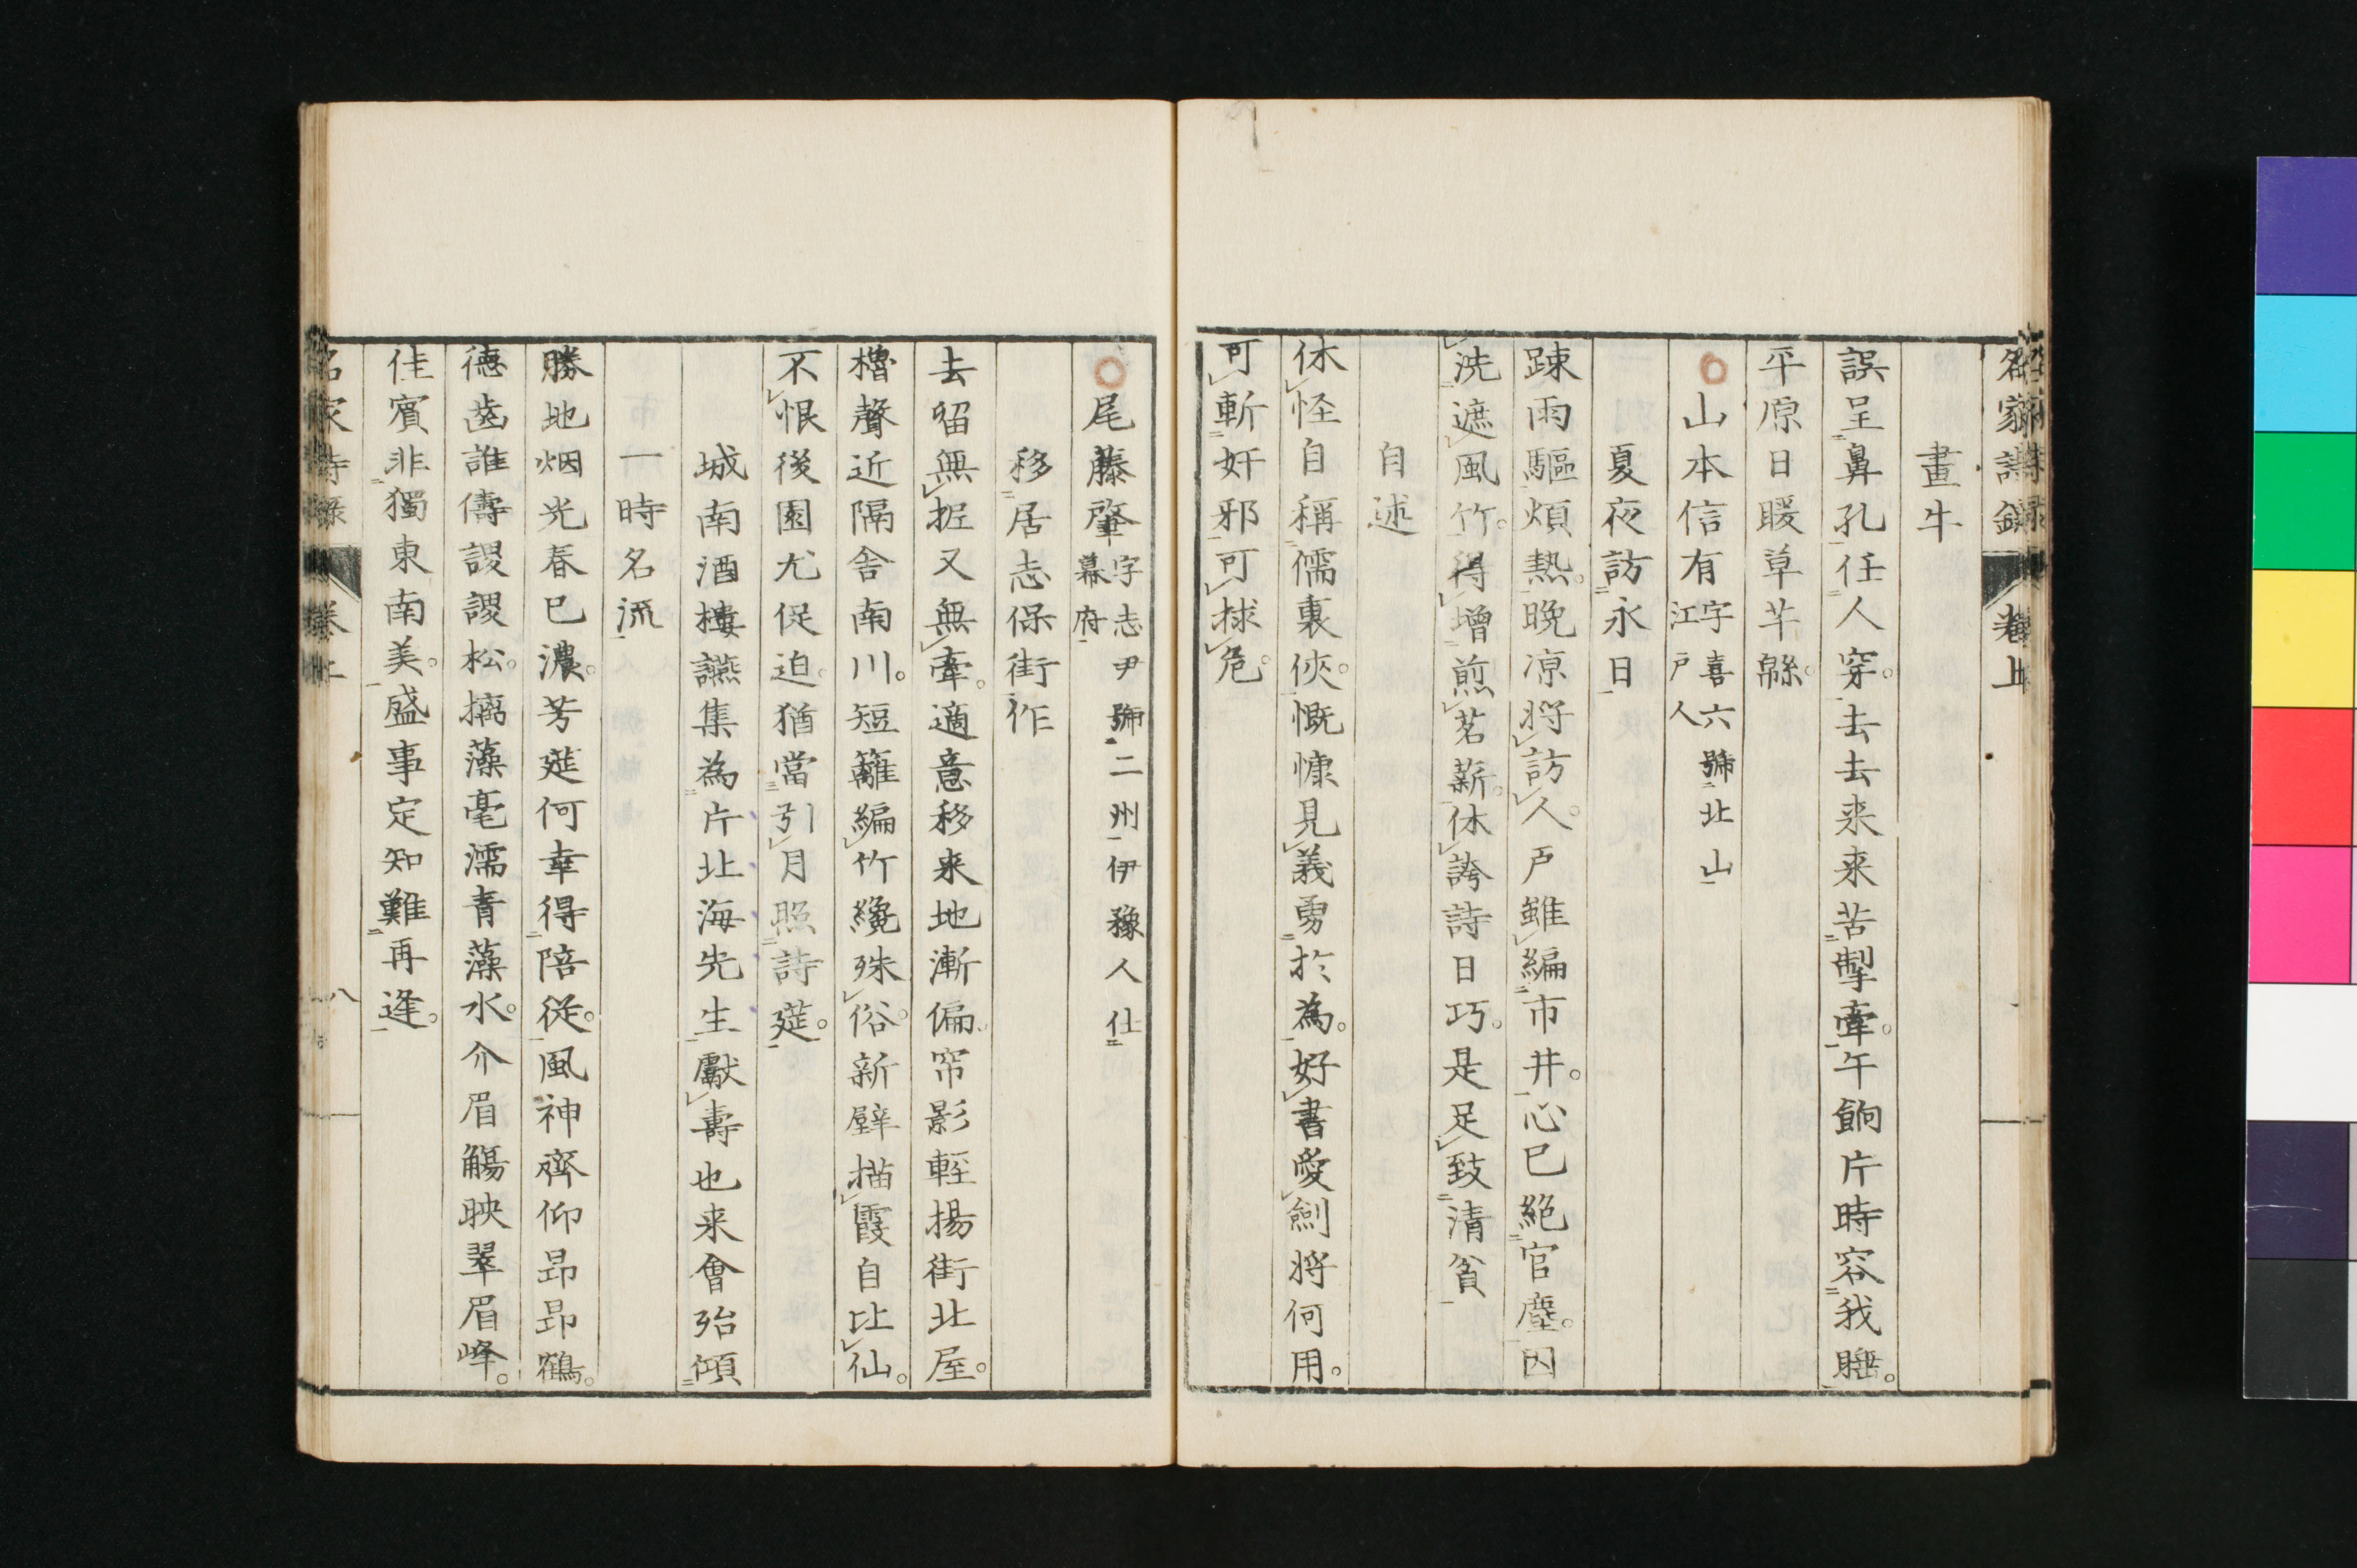 名家詩錄 卷上
畫牛
誤呈鼻孔任人穿。去去来来苦掣牽。午餉片時容我睡。
平原日暖草芊緜。
山本信有字喜六號北山
江戸人
夏夜訪永日
踈雨驅煩熱。晚凉将訪人。戸雖編市井。心已絕官塵。因
洗遮風竹。得增煎茗薪。休誇詩日巧。是足致清貧
自述
休怪自稱儒裏俠。慨慷見義勇於為。好書愛劍将何用。
可斬奸邪可捄危。
尾藤肇字志尹號二州伊豫人仕
幕府
移居志保街作
去留無据又無牽。適意移来地漸偏。帘影輕揚街北屋。
櫓聲近隔舍南川。短籬編竹纔殊俗。新壁描霞自比仙。
不恨後園尤促迫。猶當引月照詩筵。
城南酒樓讌集為片北海先生獻壽也来會殆傾
一時名流
勝地烟光春已濃。芳筵何幸得陪從。風神齊仰昂昂鶴。
德齒誰儔謖謖松。摛藻毫濡青藻水。介眉觴映翠眉峰。
佳賓非獨東南美。盛事定知難再逢。
名家詩錄 卷上 八